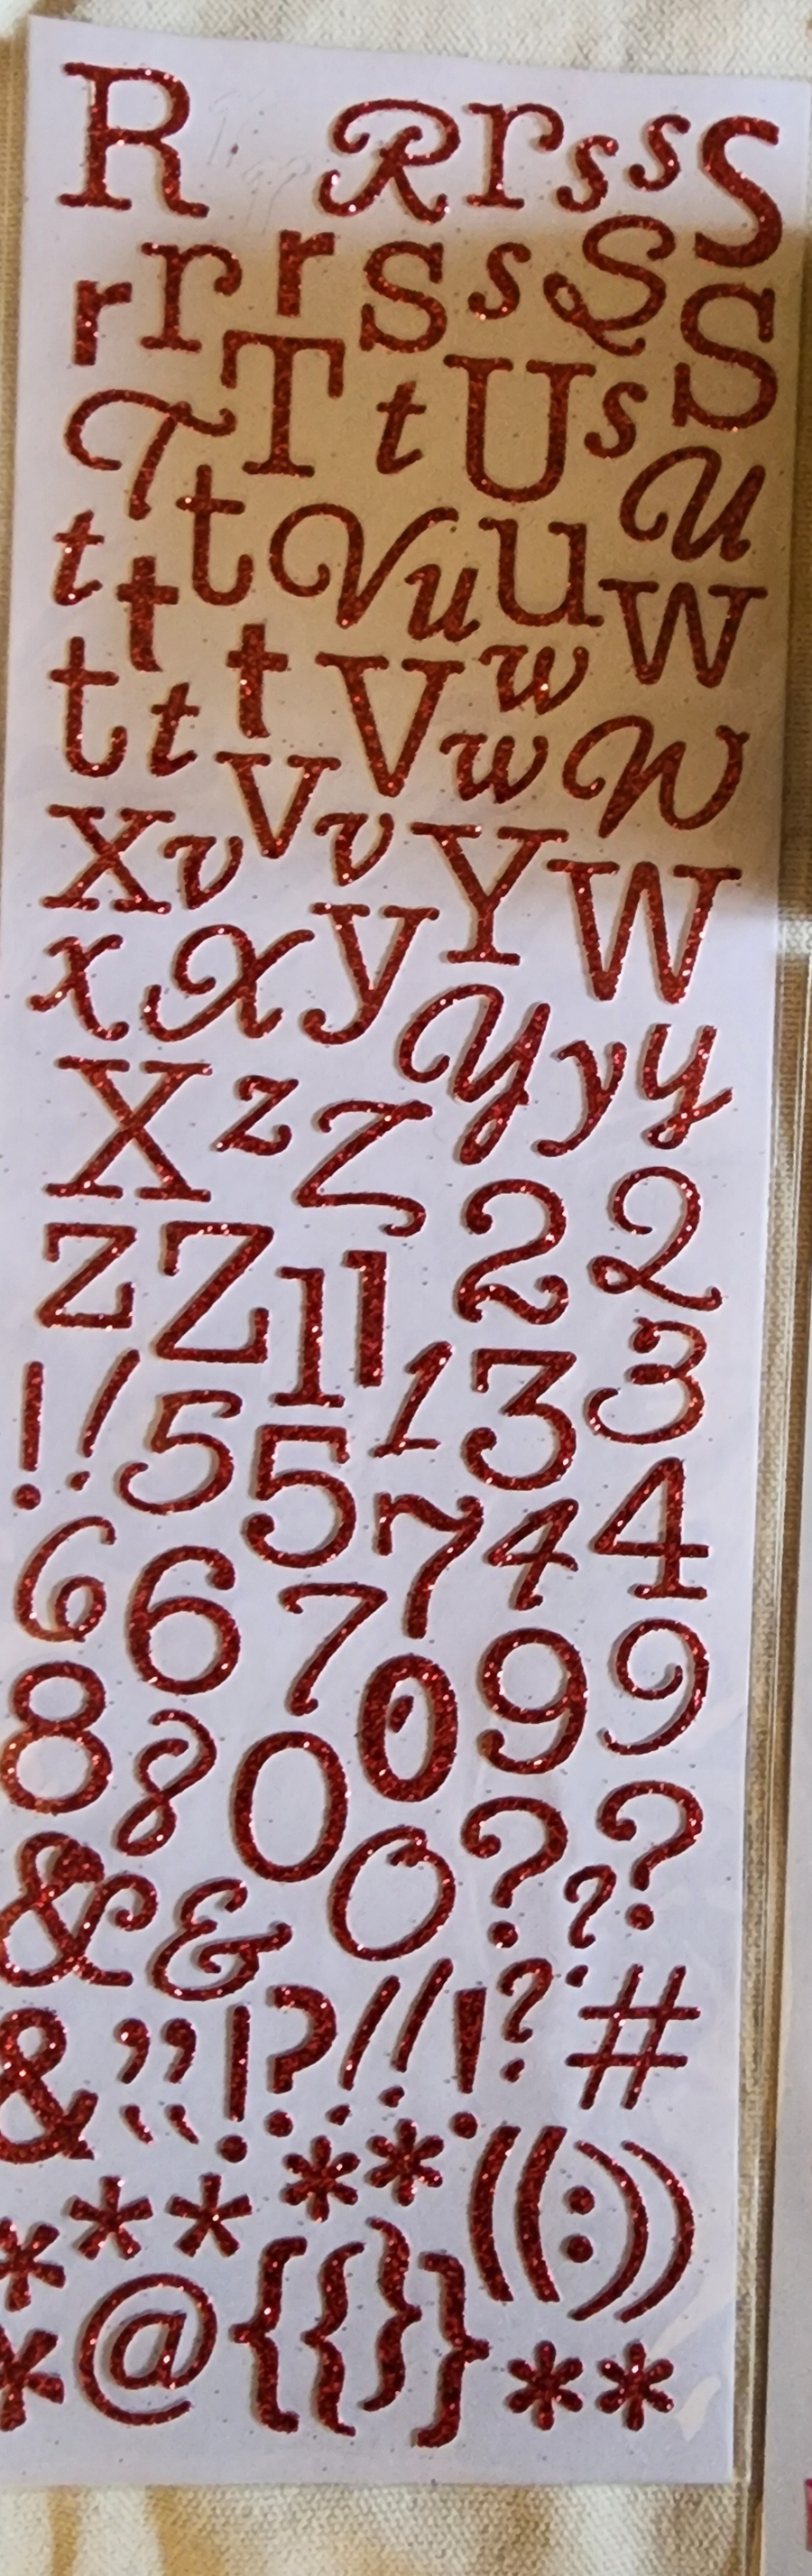 R R r s s S
r r r S s S S
T T t U s U
t t t V u u W
t t t V w w W
X v V v Y W
x X y Y y y
X z Z 2 2
z Z 1 1 1 3 3
! ! 5 5 7 4 4
6 6 7 0 9 9
8 8 0 0 ? ? ?
& & ? #
& , , ! ? ! ! !
* * * * ( ( : ) )
* * @ { { } } * *